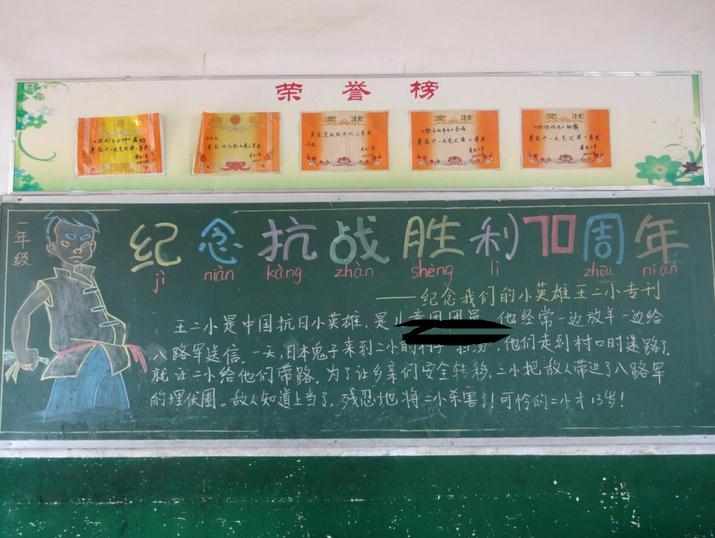 荣誉榜
奖状
奖状
奖状
一年级
纪念抗战胜利70周年
jì niàn kàng zhàn shèng lì zhōu nián
——纪念我们的小英雄王二小专刊
王二小是中国抗日小英雄,是儿童团团员 他经常一边放牛一边给
八路军送信。一天,日本鬼子来到二小的村 他们走到村口时迷路了,
就让二小给他们带路。为了让乡亲们安全转移,二小把敌人带进了八路军
的埋伏圈。敌人知道上当了,残忍地将二小杀害了!可怜的二小才13岁!